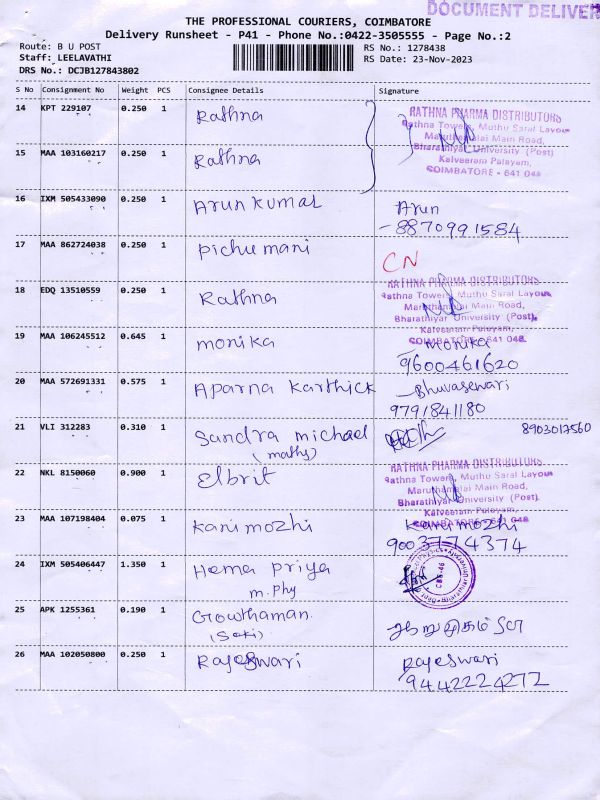 DOCUMENT DELIVER
THE PROFESSIONAL COURIERS, COIMBATORE
Delivery Runsheet - P41 - Phone No.:0422-3505555 - Page No.:2
Route: B U POST
RS No.: 1278438
Staff: LEELAVATHI
RS Date: 23-Nov-2023
DRS No.: DCJB127843802
S No Consignment No Weight PCS Consignee Details Signature
14 KPT 229107 0.250 1 Rathna
RATHNA PHARMA DISTRIBUTORS
Rathna Towers, Muthu Saral Layout
Maruthamalai Main Road,
Bharathiyar University (Post)
Kalveeram Palayam,
COIMBATORE - 641 046
15 MAA 103160217 0.250 1 Rathna
16 IXM 505433090 0.250 1 Arunkumar Arun
8870991584
17 MAA 862724038 0.250 1 Pichumani CN
18 EDQ 13510559 0.250 1 Rathna
RATHNA PHARMA DISTRIBUTORS
Rathna Towers, Muthu Saral Layout
Maruthamalai Main Road,
Bharathiyar University (Post),
Kalveeram Palayam,
COIMBATORE - 641 046
19 MAA 106245512 0.645 1 monika Monika
9600461620
20 MAA 572691331 0.575 1 Aparna Karthick Bhuvasewari
9791841180
21 VLI 312283 0.310 1 Sandra michael 8903017560
(maths)
22 NKL 8150060 0.900 1 Elbrit
RATHNA PHARMA DISTRIBUTORS
Rathna Towers, Muthu Saral Layout
Maruthamalai Main Road,
Bharathiyar University (Post)
Kalveeram Palayam,
COIMBATORE - 641 046
23 MAA 107198404 0.075 1 Kanimozhi Kanimozhi
9003774374
24 IXM 505406447 1.350 1 Hema Priya
m.Phy
CBE-46
25 APK 1255361 0.190 1 Gowthaman
26 MAA 102050800 0.250 1 Rajeswari Rajeswari
9442224272